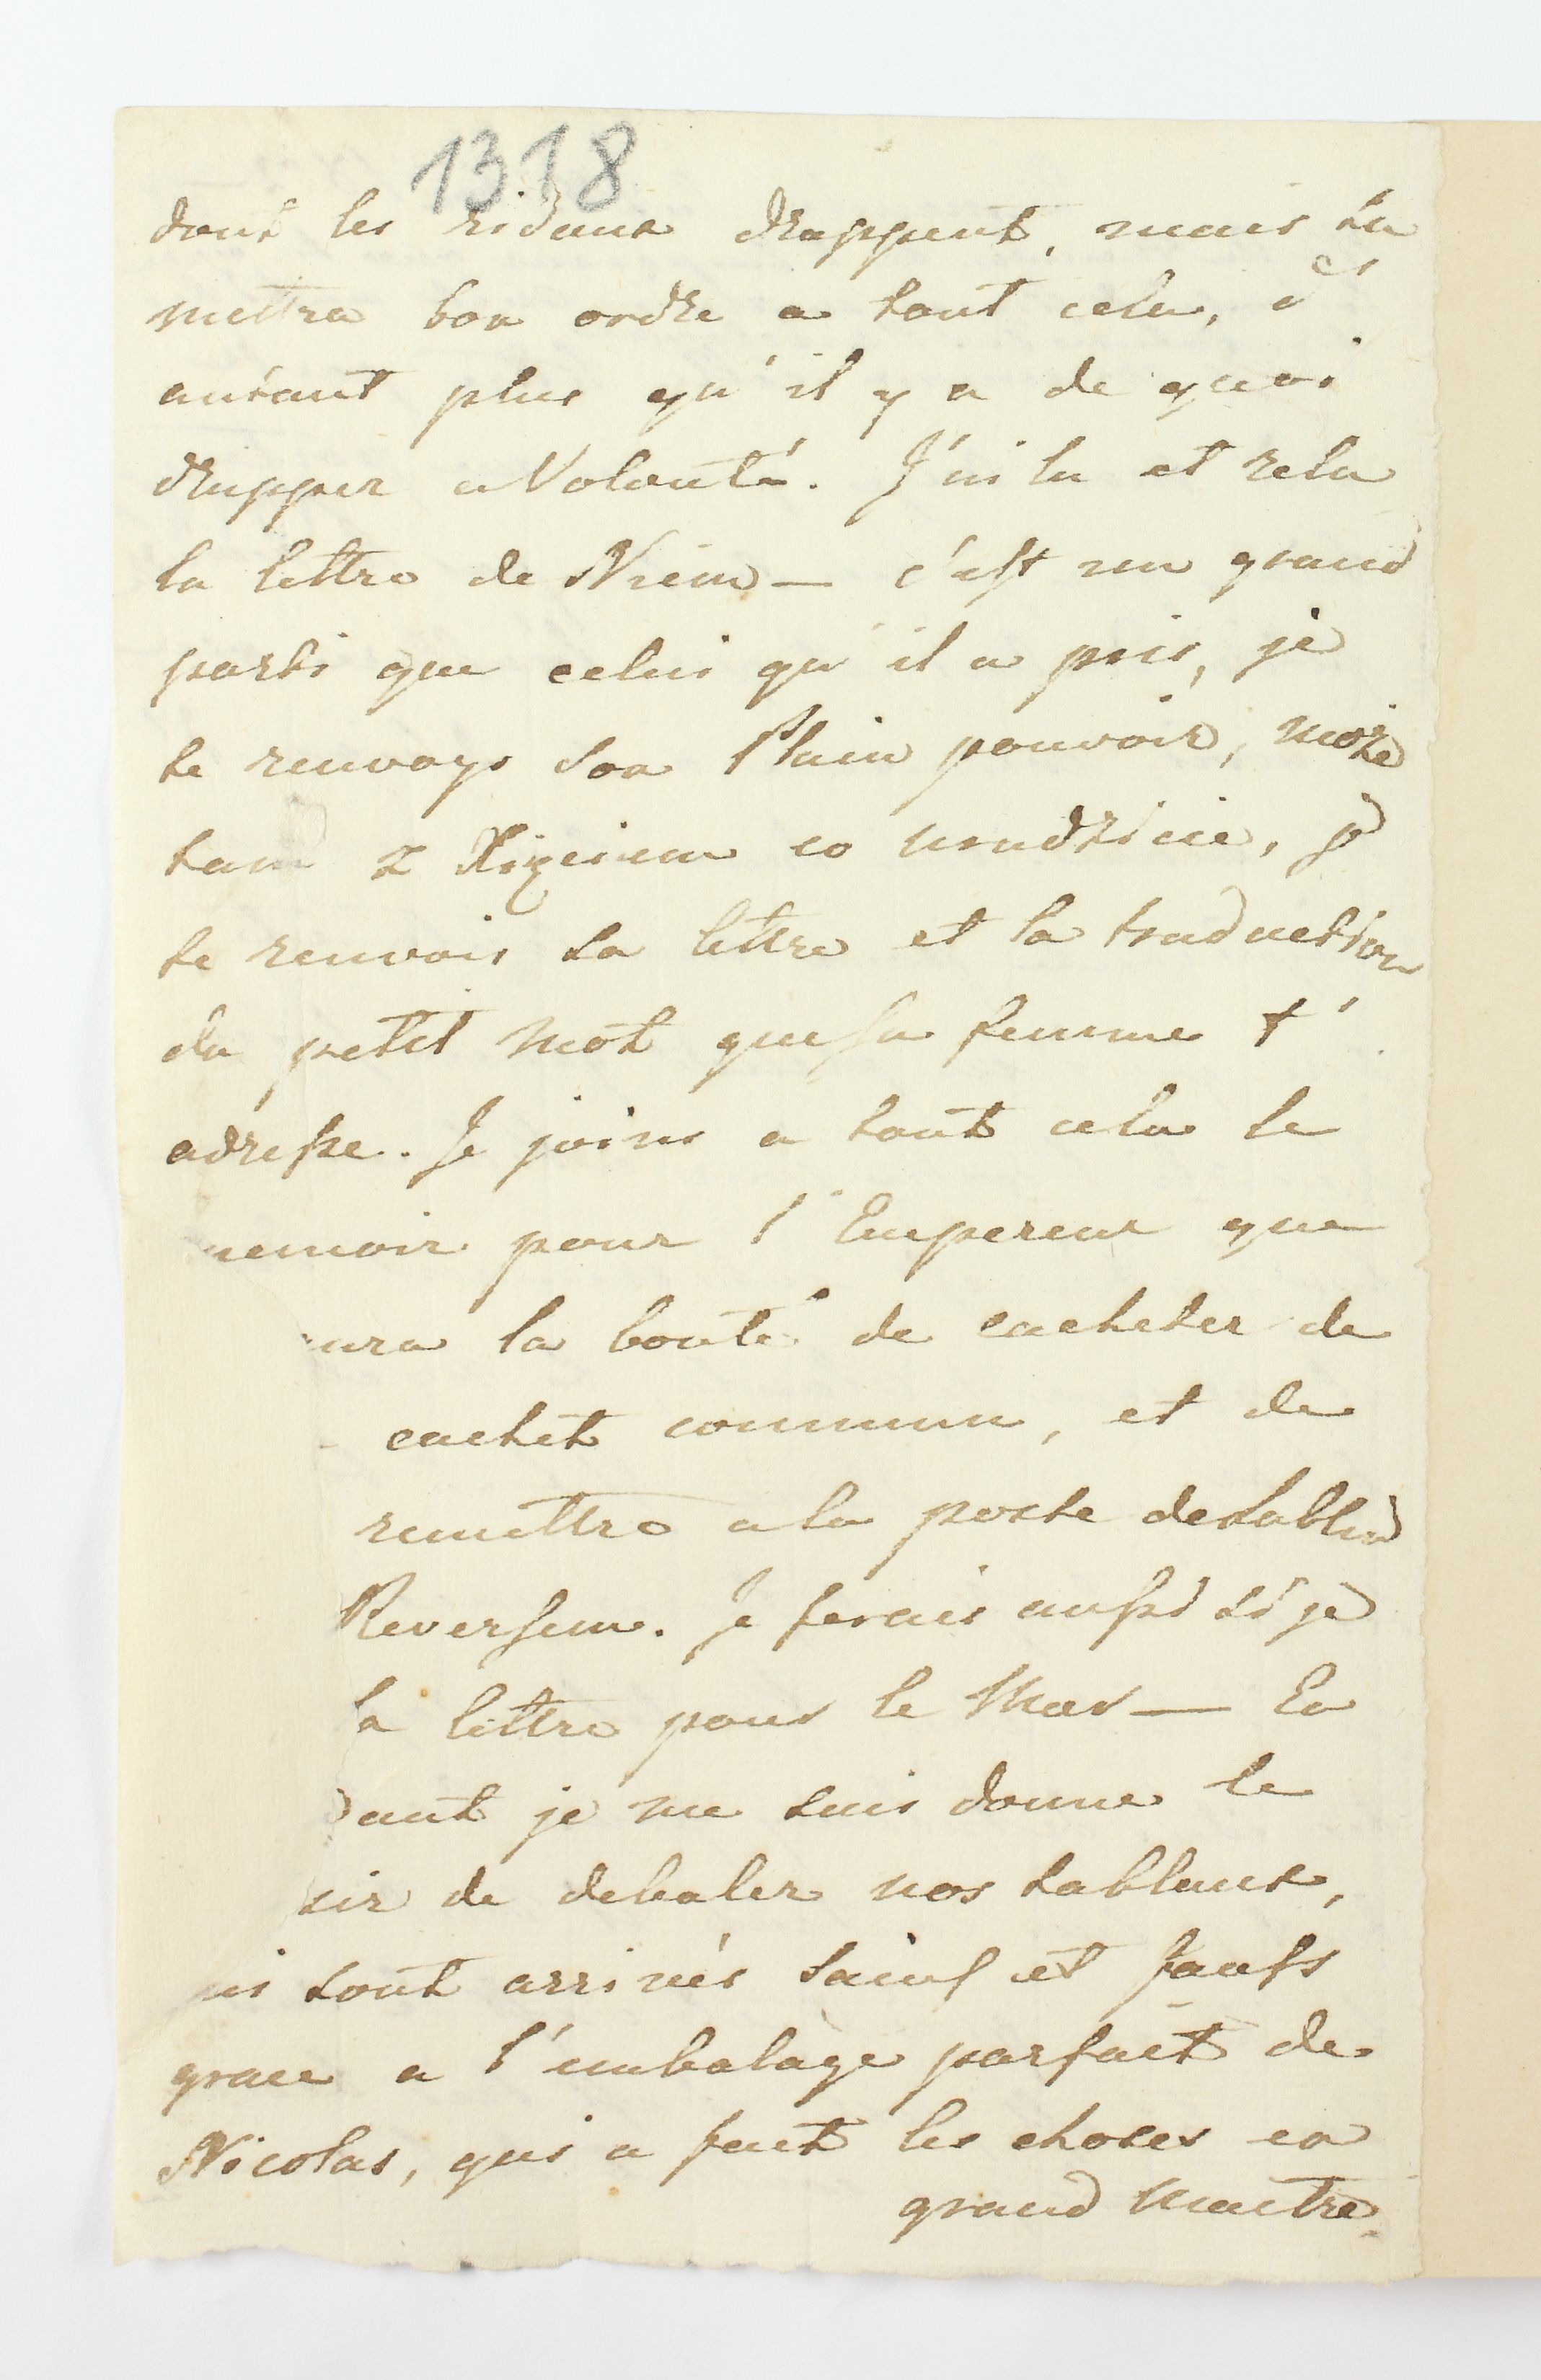 1318
dont les ridaux drappent, mais tu
mettra bon ordre a tout cela, d'
autant plus qu'il y a de quoi
drapper a Volonté. J'ai lu et relu
la lettre de Niem — c'est un grand
parti que celui qu'il a pris, je
te renvoys son Plain pouvoir, może
tam z Xięciem co wudrzicie, je
te renvois sa lettre et la traduction
du petit mot que sa femme t'
adresse. Je joins a tout cela le
memoir pour l'Empereur que
aura la bonté de cacheter de
cachet commun, et de
remettre a la poste
Reversum. Je ferais aussi si je
la lettre pour le Mar — En
dant je me suis donne le
sir de debaler nos tableaux,
ui sont arrivés sains et saufs
grace a l'embalage parfait de
Nicolas, qui a fait les choses en
grand maitre.